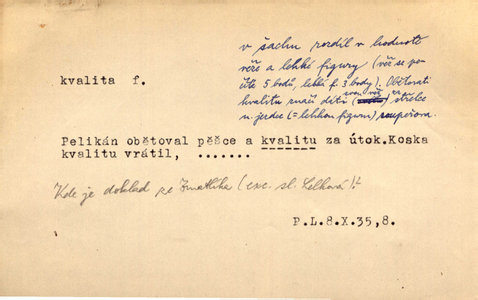 v šachu rozdíl v hodnotě
věže a lehké figury (věž se po-
čítá 5 bodů, lehká f. 3 body). Obětovati
kvalitu značí dáti svou věž za střelce
n. jezdce (= lehkou figuru) soupeřova.
kvalita f.
Pelikán obětoval pěšce a kvalitu za útok.Koska
kvalitu vrátil, .......
Kde je doklad ze (exc. sl. )?
P.L.8.X.35,8.